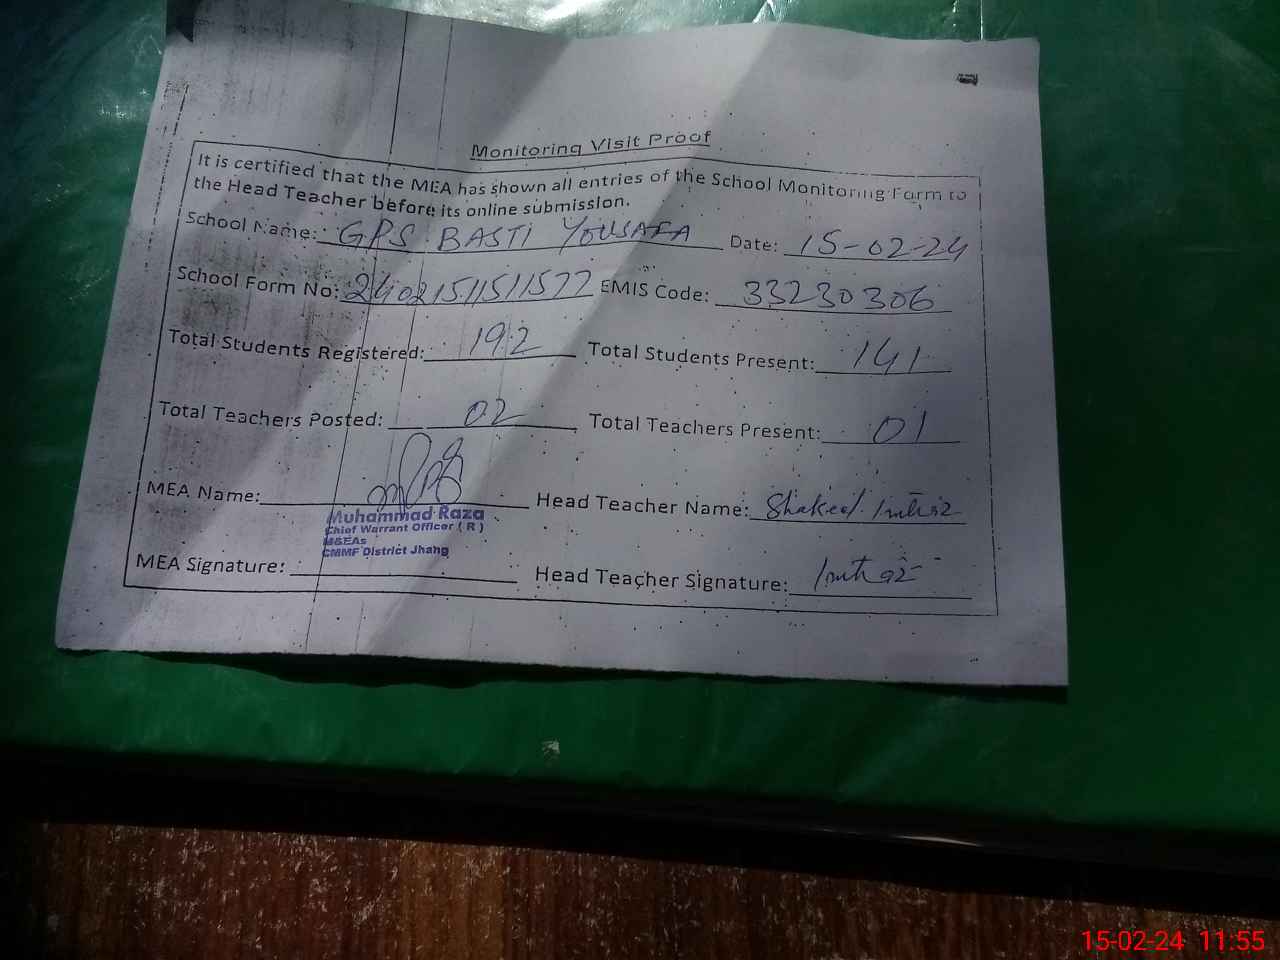 Monitoring Visit Proof
It is certified that the MEA has shown all entries of the School Monitoring Form to
the Head Teacher before its online submission.
School Name: GPS BASTI YOUSAFA Date: 15-02-24
School Form No: 2402151151577 EMIS Code: 33230306
Total Students Registered: 192 Total Students Present: 141
Total Teachers Posted: 02 Total Teachers Present: 01
MEA Name: Head Teacher Name: Shakeel
Muhammad Raza
Chief Warrant Officer ( R )
M&EAs
CMMF District Jhang
MEA Signature: Head Teacher Signature:
15-02-24 11:55